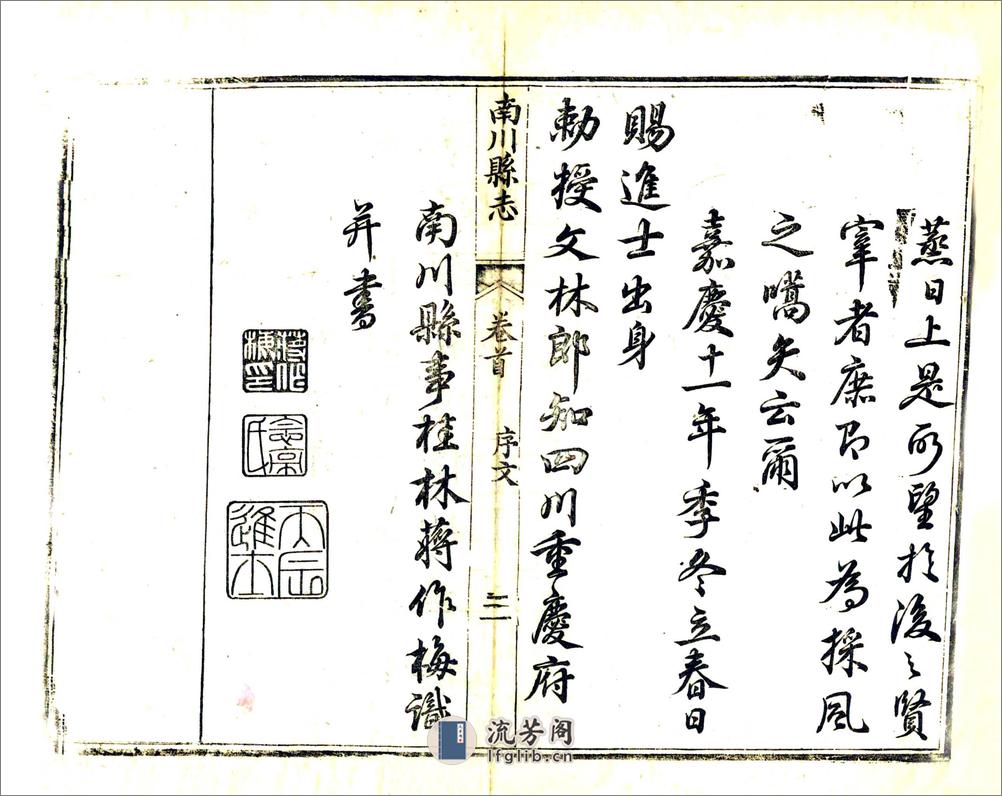 蒸日上是所望於後之賢
宰者庶即以此為採風
之嚆矢云爾
嘉慶十一年季冬立春日
賜進士出身
勅授文林郎知四川重慶府
南川縣志 卷首 序文 三
南川縣事桂林蔣作梅識
并書
蔣作楳印
丙辰進士
流芳阁
lfglib.cn